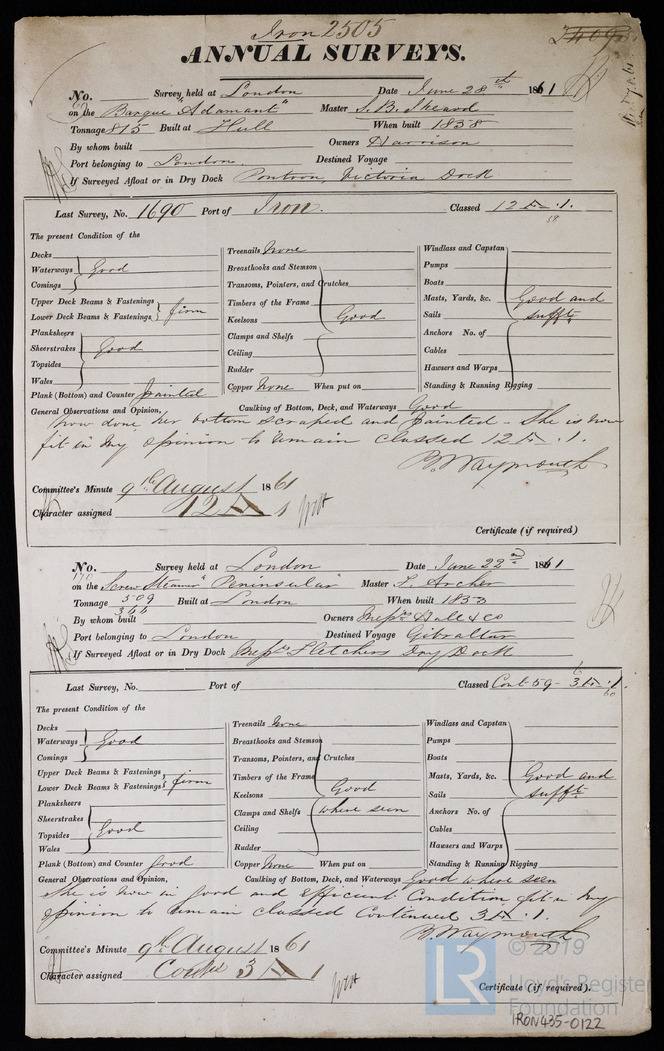 Iron 2505
ANNUAL SURVEYS.
No. Survey held at London Date June 28th 1861
on the Barque "Adamant" Master
Tonnage 815 Built at Hull When built 1858
By whom built Owners Harrison
Port belonging to London. Destined Voyage
If Surveyed Afloat or in Dry Dock Pontoon, Victoria Dock
Last Survey, No. 1690 Port of Iron. Classed 12 A .1.
58
The present Condition of the
Decks
Waterways Good
Comings
Upper Deck Beams & Fastenings
Lower Deck Beams & Fastenings firm
Planksheers
Sheerstrakes Good
Topsides
Wales
Plank (Bottom) and Counter painted
Treenails None
Breasthooks and Stemson
Transoms, Pointers, and Crutches
Timbers of the Frame
Keelsons Good
Clamps and Shelfs
Ceiling
Rudder
Copper None When put on
Windlass and Capstan
Pumps
Boats
Masts, Yards, &c. Good and
Sails sufft.
Anchors No. of
Cables
Hawsers and Warps
Standing & Running Rigging
General Observations and Opinion, Caulking of Bottom, Deck, and Waterways Good
now done her bottom scraped and painted - She is now
fit in my opinion to remain classed 12 A .1.
B. Waymouth
Committee's Minute 9th August 1861
Character assigned 12 A 1
Certificate (if required)
No. Survey held at London Date June 22nd 1861
170
on the Screw Steamer "Peninsular" Master L. Archer
Tonnage 509 Built at London When built 1853
366
By whom built Owners Messrs Hall & Co
Port belonging to London Destined Voyage Gibraltar
If Surveyed Afloat or in Dry Dock Messrs Fletchers Dry Dock
Last Survey, No. Port of Classed Cont 59 - 3 A .1.
60
The present Condition of the
Decks
Waterways Good
Comings
Upper Deck Beams & Fastenings
Lower Deck Beams & Fastenings firm
Planksheers
Sheerstrakes
Topsides Good
Wales
Plank (Bottom) and Counter good
Treenails None
Breasthooks and Stemson
Transoms, Pointers, and Crutches
Timbers of the Frame
Keelsons Good
Clamps and Shelfs where seen
Ceiling
Rudder
Copper None When put on
Windlass and Capstan
Pumps
Boats
Masts, Yards, &c. Good and
Sails sufft.
Anchors No. of
Cables
Hawsers and Warps
Standing & Running Rigging
General Observations and Opinion, Caulking of Bottom, Deck, and Waterways Good where seen
She is now in good and efficient Condition fit in my
opinion to remain classed Continued 3 A .1.
B. Waymouth
Committee's Minute 9th August 1861
Character assigned 3 A 1
Certificate (if required).
© 2019
LR Lloyd's Register
Foundation
IRON435-0122